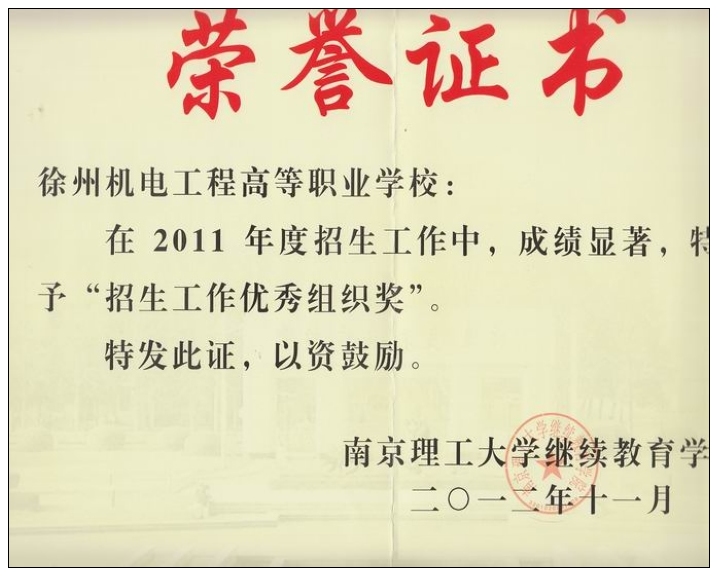 荣誉证书
徐州机电工程高等职业学校：
在 2011 年度招生工作中，成绩显著，特
予“招生工作优秀组织奖”。
特发此证，以资鼓励。
南京理工大学继续教育学
二〇一二年十一月